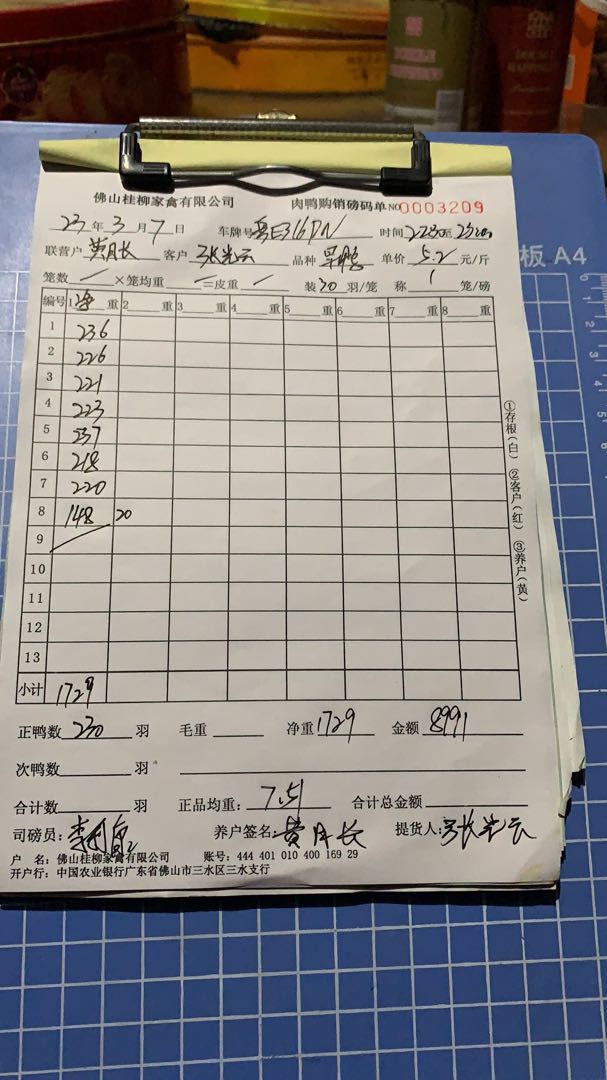 佛山桂柳家禽有限公司 肉鸭购销磅码单 NO 0003209
23年3月7日 车牌号 时间 2230至2300
联营户 黄月长 客户 张光云 品种 单价 5.2 元/斤
笼数 ×笼均重 =皮重 装 30 羽/笼 称 1 笼/磅
编号 1净重 2 重 3 重 4 重 5 重 6 重 7 重 8 重
1 236
2 226
3 221
4 223
5 237
6 218
7 220
8 148 20
9
10
11
12
13
小计 1729
正鸭数 230 羽 毛重 净重 1729 金额 8991
次鸭数 羽
合计数 羽 正品均重: 7.51 合计总金额
司磅员: 养户签名: 黄月长 提货人: 张光云
户 名: 佛山桂柳家禽有限公司 账号: 444 401 010 400 169 29
开户行: 中国农业银行广东省佛山市三水区三水支行
①存根(白) ②客户(红) ③养户(黄)
板 A4